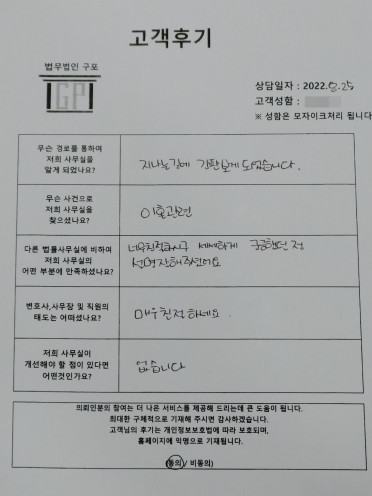 고객후기
법무법인 구포
GP
상담일자 : 2022.8.25
고객성함 :
※ 성함은 모자이크처리 됩니다
무슨 경로를 통하여
저희 사무실을
알게 되었나요?
지나는길에 간판보게 되었습니다.
무슨 사건으로
저희 사무실을
찾으셨나요?
이혼관련
다른 법률사무실에 비하여
저희 사무실의
어떤 부분에 만족하셨나요?
너무친절하시구 세세하게 궁금했던 점
설명잘해주셨어요
변호사,사무장 및 직원의
태도는 어떠셨나요?
매우친절하세요.
저희 사무실이
개선해야 할 점이 있다면
어떤것인가요?
없습니다
의뢰인분의 참여는 더 나은 서비스를 제공해 드리는데 큰 도움이 됩니다.
최대한 구체적으로 기재해 주시면 감사하겠습니다.
고객님의 후기는 개인정보보호법에 따라 보호되며,
홈페이지에 익명으로 기재됩니다.
(동의 / 비동의)